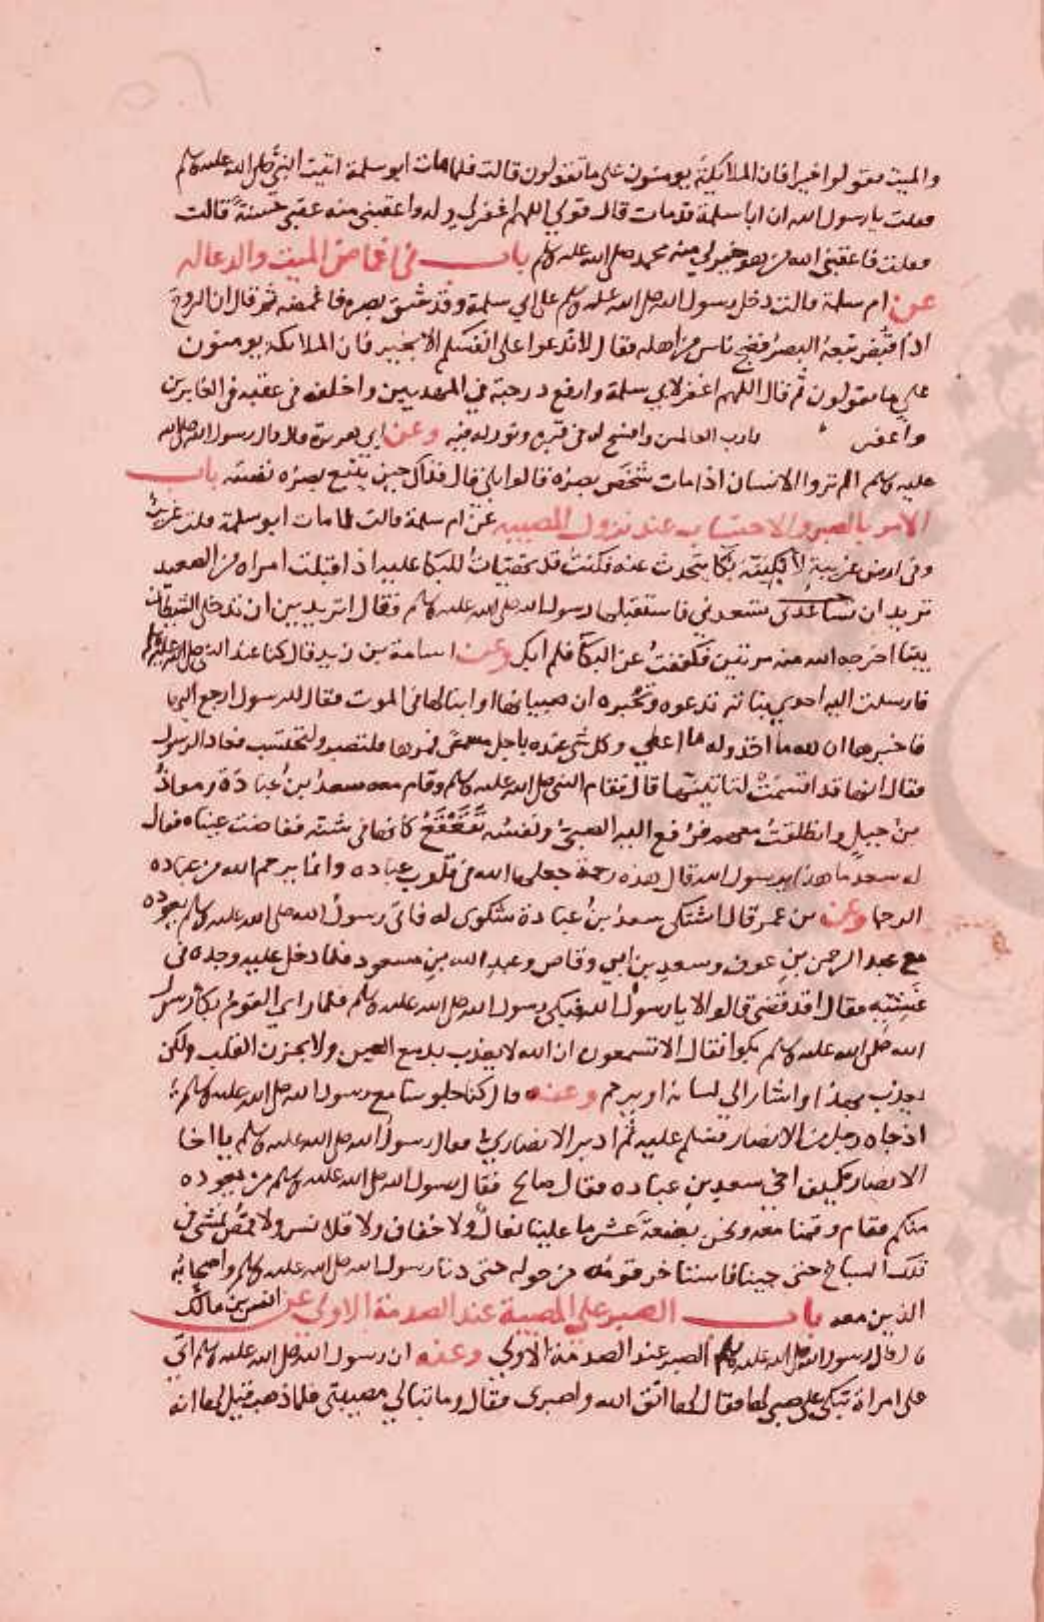 والميت فقولوا خيرا فان الملائكة يومنون على ما تقولون قالت فلما مات ابو سلمة اتيت النبي صلى الله عليه وسلم
فقلت يا رسول الله ان ابا سلمة قد مات قال قولي اللهم اغفر لي وله واعقبني منه عقبى حسنة قالت
فقلت فاعقبني الله من هو خير لي منه محمد صلى الله عليه وسلم باب في اغماض الميت والدعاله
عن ام سلمة قالت دخل رسول الله صلى الله عليه وسلم على ابي سلمة وقد شق بصره فاغمضه ثم قال ان الروح
اذا قبض تبعه البصر فضج ناس من اهله فقال لا تدعوا على انفسكم الا بخير فان الملائكة يومنون
على ما تقولون ثم قال اللهم اغفر لابي سلمة وارفع درجته في المهديين واخلفه في عقبه في الغابرين
واغفر يا رب العالمين وافسح له في قبره ونور له فيه وعن ابي هريرة قال قال رسول الله صلى الله
عليه وسلم الم تروا الانسان اذا مات شخص بصره قالوا بلى قال فذاك حين يتبع بصره نفسه باب
الامر بالصبر والاحتساب عند نزول المصيبه عن ام سلمة قالت لما مات ابو سلمة قلت غريب
وفي ارض غربة لأبكينه بكا يتحدث عنه فكنت قد تهيات للبكا عليه اذ اقبلت امراه من الصعيد
تريد ان تسعدني فاستقبلها رسول الله صلى الله عليه وسلم فقال اتريدين ان تدخلي الشيطان
بيتا اخرجه الله منه مرتين فكففت عن البكا فلم ابك وعن اسامة بن زيد قال كنا عند النبي صلى الله عليه وسلم
فارسلت اليه احدى بناته تدعوه وتخبره ان صبيا لها او ابنا لها في الموت فقال للرسول ارجع اليها
فاخبرها ان لله ما اخذ وله ما اعطي وكل شي عنده باجل مسمى فمرها فلتصبر ولتحتسب فعاد الرسول
فقال انها قد اقسمت لتاتينها قال فقام النبي صلى الله عليه وسلم وقام معه سعد بن عبادة ومعاذ
بن جبل وانطلقت معهم فرفع اليه الصبي ونفسه تقعقع كانها في شنة ففاضت عيناه فقال
له سعد ما هذا يا رسول الله قال هذه رحمة جعلها الله في قلوب عباده وانما يرحم الله من عباده
الرحما وعن بن عمر قال اشتكى سعد بن عبادة شكوى له فاتى رسول الله صلى الله عليه وسلم يعوده
مع عبد الرحمن بن عوف وسعد بن ابي وقاص وعبد الله بن مسعود فلما دخل عليه وجده في
غشيته فقال اقد قضى قالوا لا يا رسول الله فبكى رسول الله صلى الله عليه وسلم فلما راى القوم بكا رسول
الله صلى الله عليه وسلم بكوا فقال الا تسمعون ان الله لا يعذب بدمع العين ولا بحزن القلب ولكن
يعذب بهذا واشار الى لسانه او يرحم وعنه قال كنا جلوسا مع رسول الله صلى الله عليه وسلم
اذ جاه رجل من الانصار فسلم عليه ثم ادبر الانصاري فقال رسول الله صلى الله عليه وسلم يا اخا
الانصار كيف اخي سعد بن عباده فقال صالح فقال رسول الله صلى الله عليه وسلم من يعوده
منكم فقام وقمنا معه ونحن بضعة عشر ما علينا نعال ولا خفاف ولا قلانس ولا قمص نمشي في
تلك السباخ حتى جيناه فاستاخر قومه من حوله حتى دنا رسول الله صلى الله عليه وسلم واصحابه
الذين معه باب الصبر على المصيبة عند الصدمة الاولى عن انس بن مالك
قال قال رسول الله صلى الله عليه وسلم الصبر عند الصدمة الاولى وعنه ان رسول الله صلى الله عليه وسلم اتى
على امراة تبكي على صبي لها فقال لها اتق الله واصبرى فقال وما تبالي مصيبتي فلما ذهب قيل لها انه